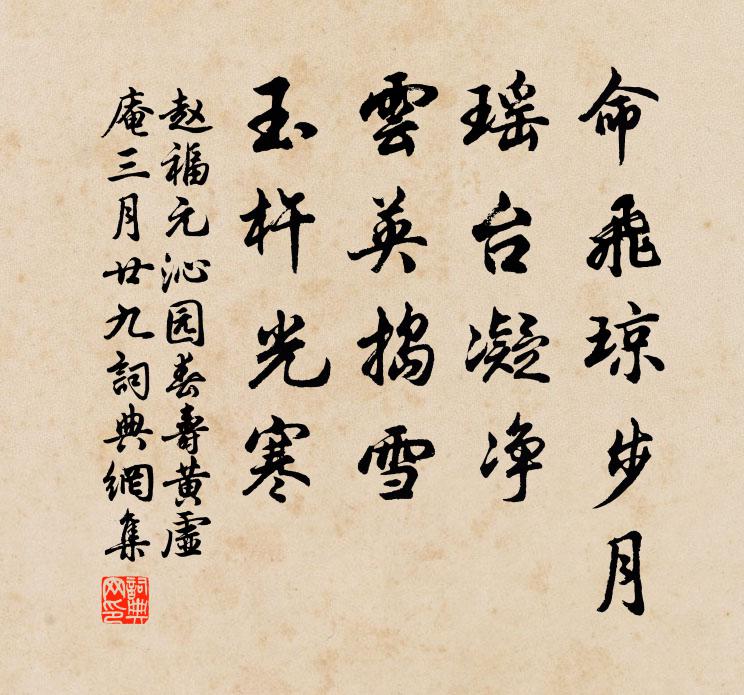 命飛瓊步月
瑶台凝净
雲英搗雪
玉杵光寒
赵福元沁园春壽黄虛
庵三月廿九詞典網集
詞典
网印